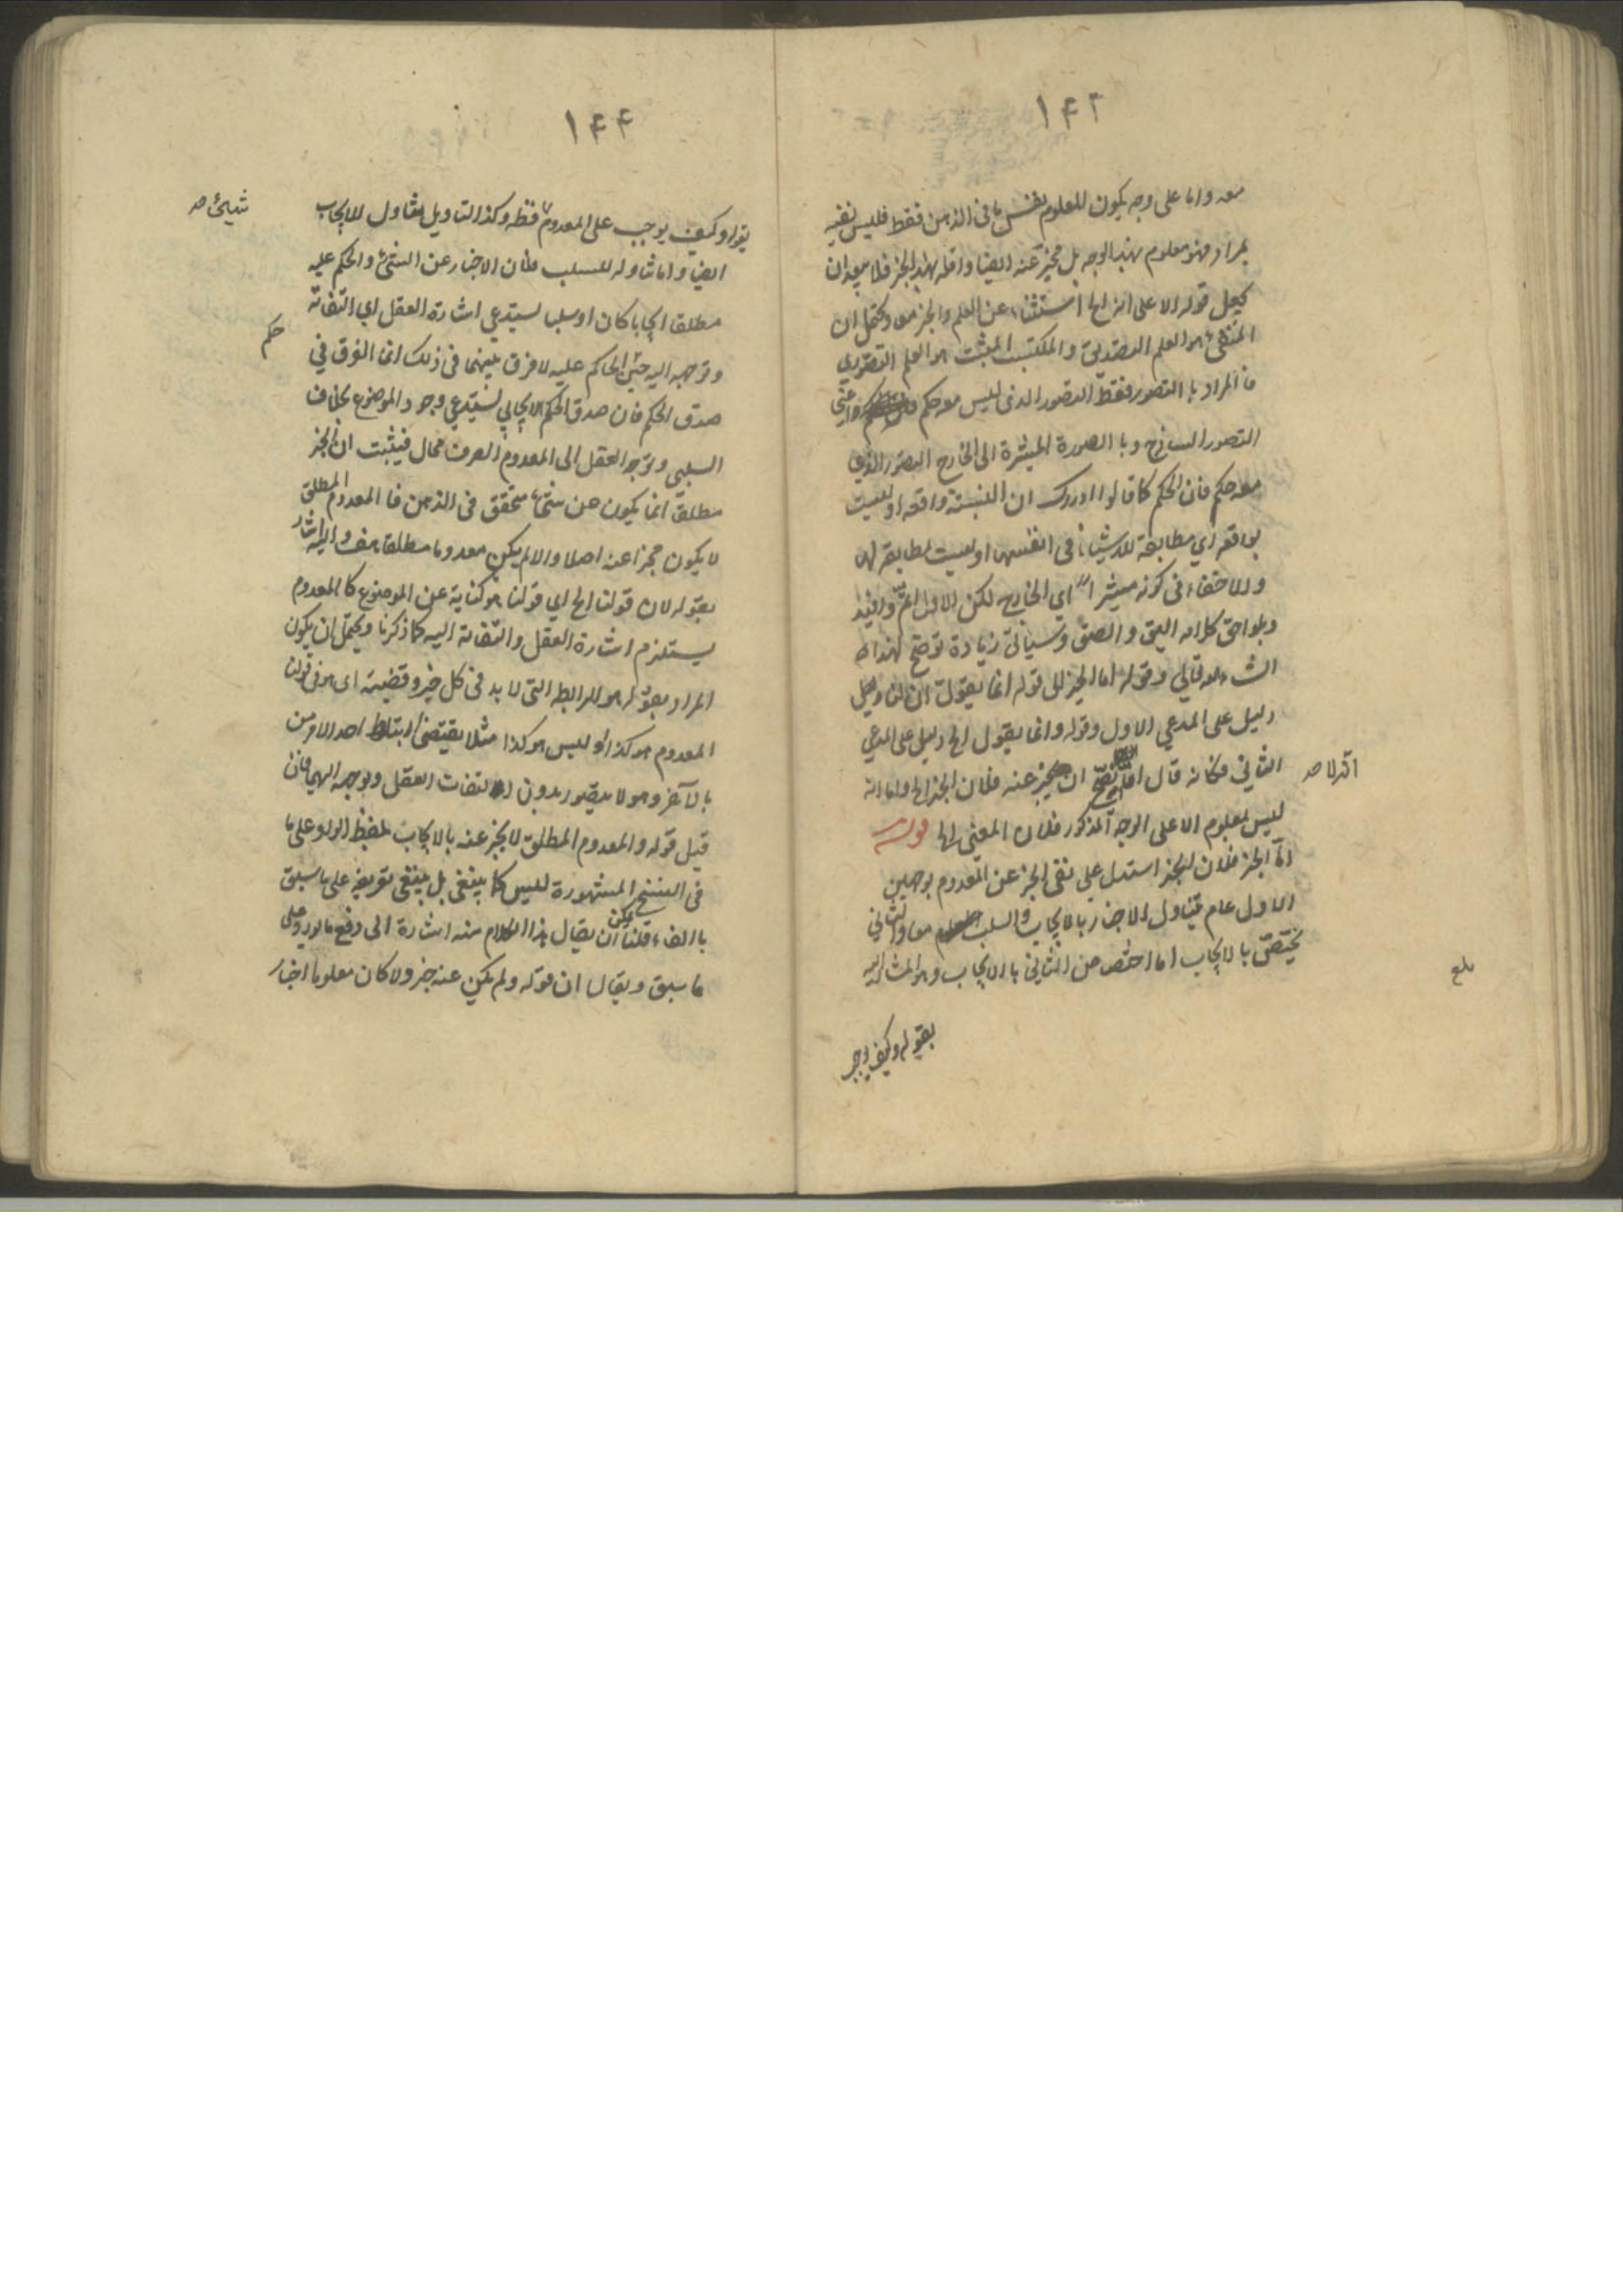 ١٤٢
معه واما على وجه يكون للمعلوم نفس ما فى الذهن فقط فليس نفيه
بمراد فهو معلوم بهذا الوجه بل مخبر عنه ايضا واقله بهذا الخبر فلا يبعد ان
يجعل قوله الا على انه الخ استثناء عن العلم والخبر معا ويحتمل ان
المنفى هو العلم التصديقى والمكتسب المثبت هو العلم التصورى
فالمراد بالتصور فقط التصور الذى ليس معه حكم واعنى
التصور الساذج وبالصورة المشيرة الى الخارج التصور الذى
معه حكم فان الحكم كما قالوا ادراك ان النسبة واقعة او ليست
بواقعة اي مطابقة للاشياء فى انفسها او ليست بمطابقة لها
ولا خفاء فى كونه مشيرا اي الخارج لكن الاول اتم وافيد
وبلواحق كلامه اليق والصق وسيأتى زيادة توضيح لهذا ان
الشاء الله تعالى وقوله اما الخبر الى قوله انما يقول ان لنا دليل
دليل على المدعي الاول وقوله وانما يقول الخ دليل على المدعي
الثانى فكانه قال اما ان يخبر عنه فلان الخبر الخ واما انه
انه لا صح
ليس بمعلوم الا على الوجه المذكور فلان المعنى الخ قوله
اما الخبر فلان الخبر استدل على نفى الخبر عن المعدوم بوجهين
الاول عام يتناول الاخبار بالايجاب والسلب معا والثانى
يختص بالايجاب اما اختص من الثانى بالايجاب وهو المشار اليه
بلغ
بقوله وكيف يوجب
١٤٤
بقوله وكيف يوجب على المعدوم فقط وكذا التاويل يتناول للايجاب
شيئ صح
ايضا واما تناوله للسلب فلان الاخبار عن الشئ والحكم عليه
مطلقا ايجابا كان او سلبا يستدعي اشارة العقل اي التفاته
وتوجهه اليه حتى الحاكم عليه لا فرق بينهما فى ذلك انما الفرق فى
حكم
صدق الحكم فان صدق الحكم الايجابي يستدعي وجود الموضوع بخلاف
السلبى وتوجه العقل الى المعدوم الصرف محال فيثبت ان الخبر
مطلقا انما يكون عن شئ متحقق فى الذهن فالمعدوم المطلق
لا يكون مخبرا عنه اصلا والا لم يكن معدوما مطلقا هف واليه اشار
بقوله لان قولنا الخ اي قولنا هو كناية عن الموضوع كالمعدوم
يستلزم اشارة العقل والتفاته اليه كما ذكرنا ويحتمل ان يكون
المراد بقوله هو الرابطة التى لا بد فى كل خبر وقضية اى هو فى قولنا
المعدوم هو كذا او ليس هو كذا مثلا يقتضى ارتباط احد الامرين
بالآخر وهو لا يتصور بدون التفات العقل وتوجهه اليهما فان
قيل قوله والمعدوم المطلق لا يخبر عنه بالايجاب بلفظ الواو على ما
فى النسخ المشهورة ليس كما ينبغى بل ينبغى تفريعه على ما سبق
بالفاء قلنا يمكن ان يقال هذا الكلام منه اشارة الى دفع ما يورد على
ما سبق ويقال ان قوله ولم يكن عنه خبر ولا كان معلوما اخبار